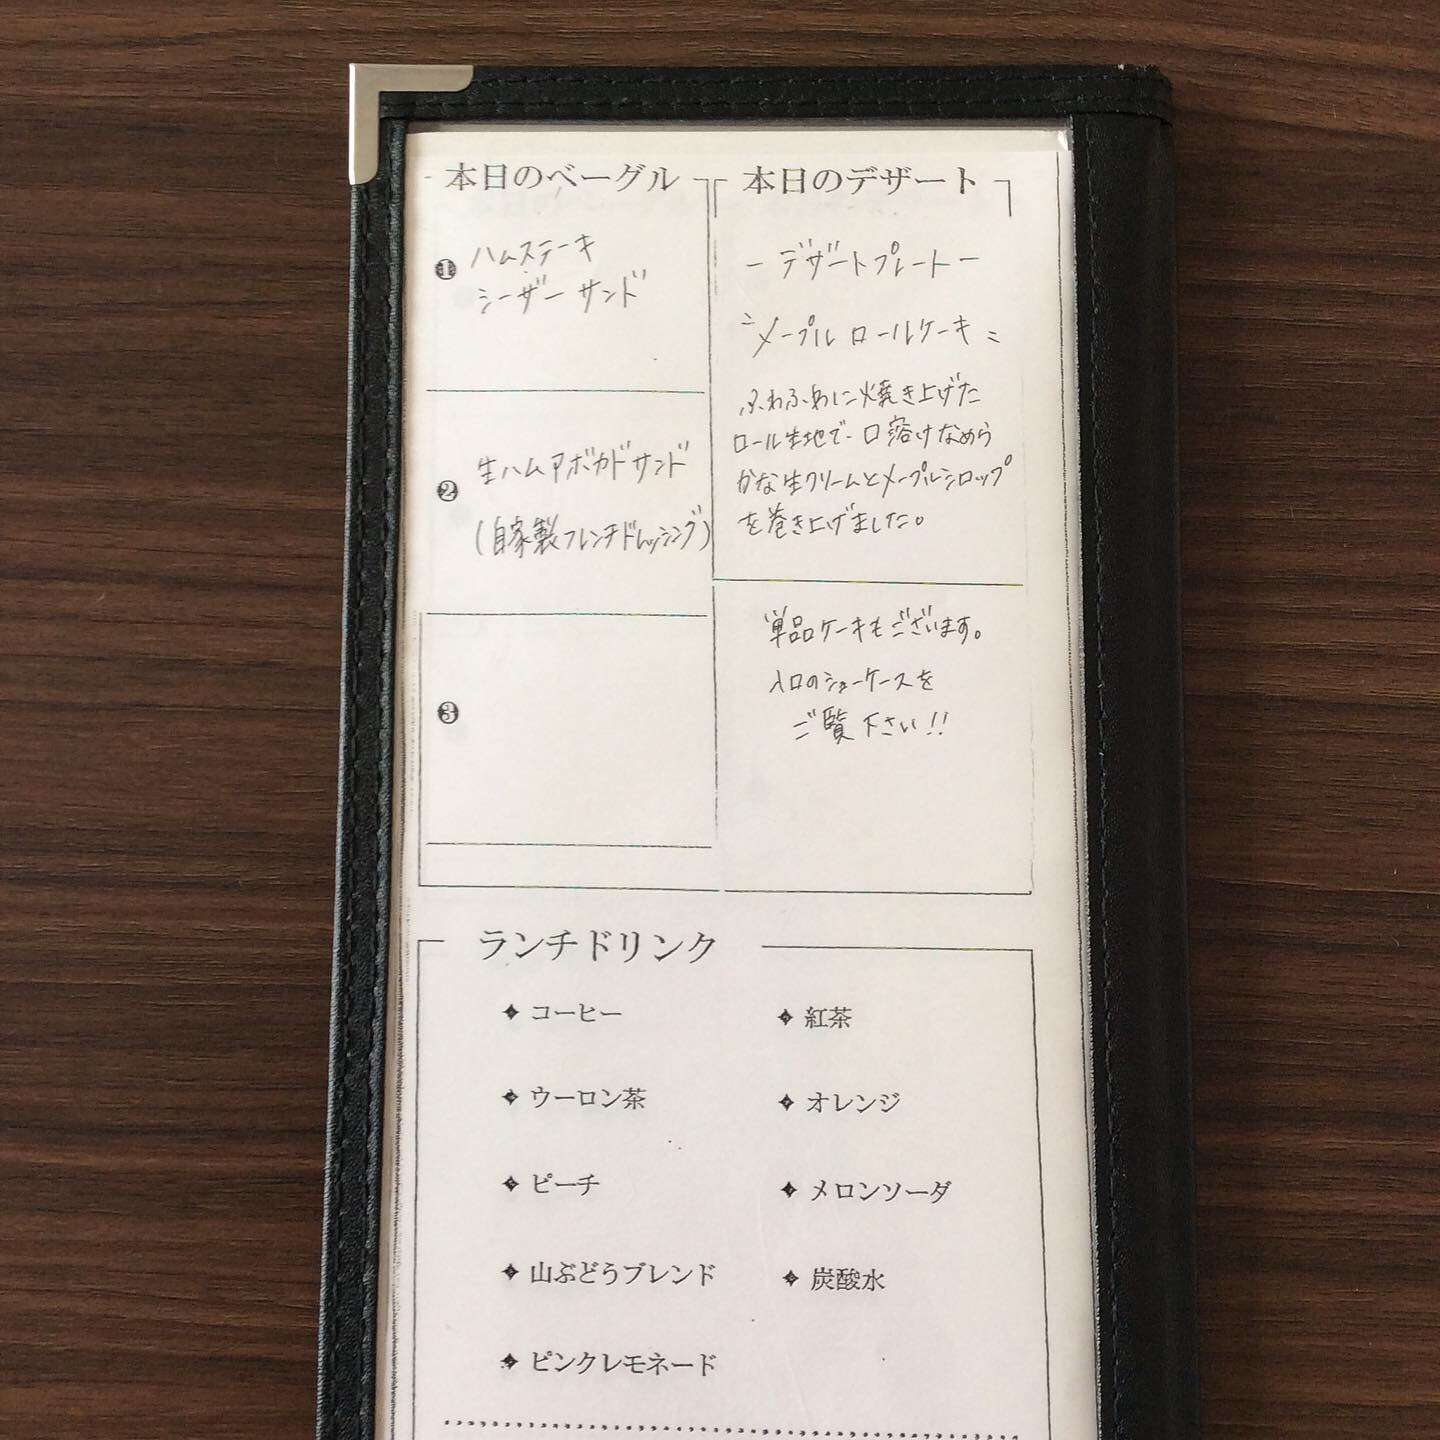 本日のベーグル
❶ ハムステーキ
シーザーサンド
❷ 生ハムアボカドサンド
(自家製フレンチドレッシング)
❸
本日のデザート
ーデザートプレートー
ﾆメープルロールケーキﾆ
ふわふわに焼き上げた
ロール生地で口溶けなめら
かな生クリームとメープルシロップ
を巻き上げました。
単品ケーキもございます。
入口のショーケースを
ご覧下さい!!
ランチドリンク
コーヒー
紅茶
ウーロン茶
オレンジ
ピーチ
メロンソーダ
山ぶどうブレンド
炭酸水
ピンクレモネード